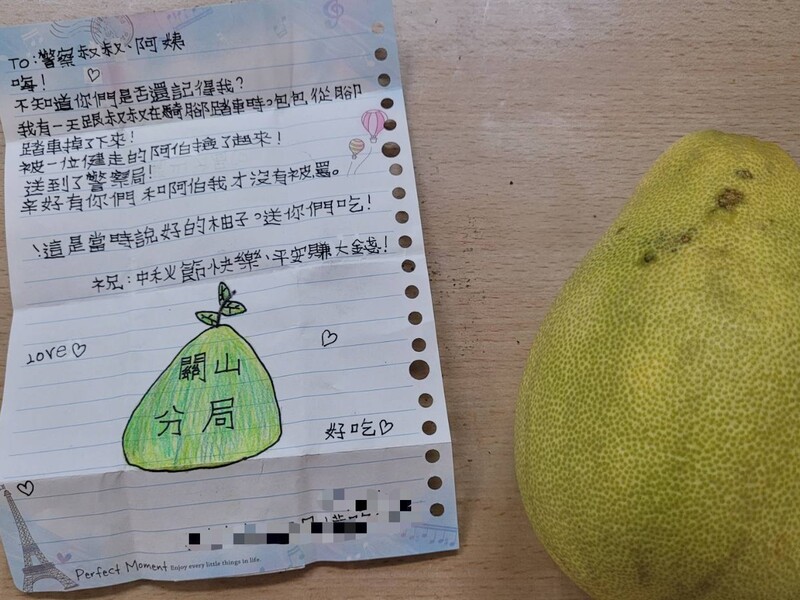 TO:警察叔叔、阿姨
嗨! ♡
不知道你們是否還記得我?
我有一天跟叔叔在騎腳踏車時。包包從腳
踏車掉了下來!
被一位健走的阿伯撿了起來!
送到了警察局!
幸好有你們和阿伯我才沒有被罵。
這是當時說好的柚子。送你們吃!
祝:中秋節快樂、平安賺大金錢!
Love♡
關山
分局
好吃♡
Perfect Moment Enjoy every little things in life.